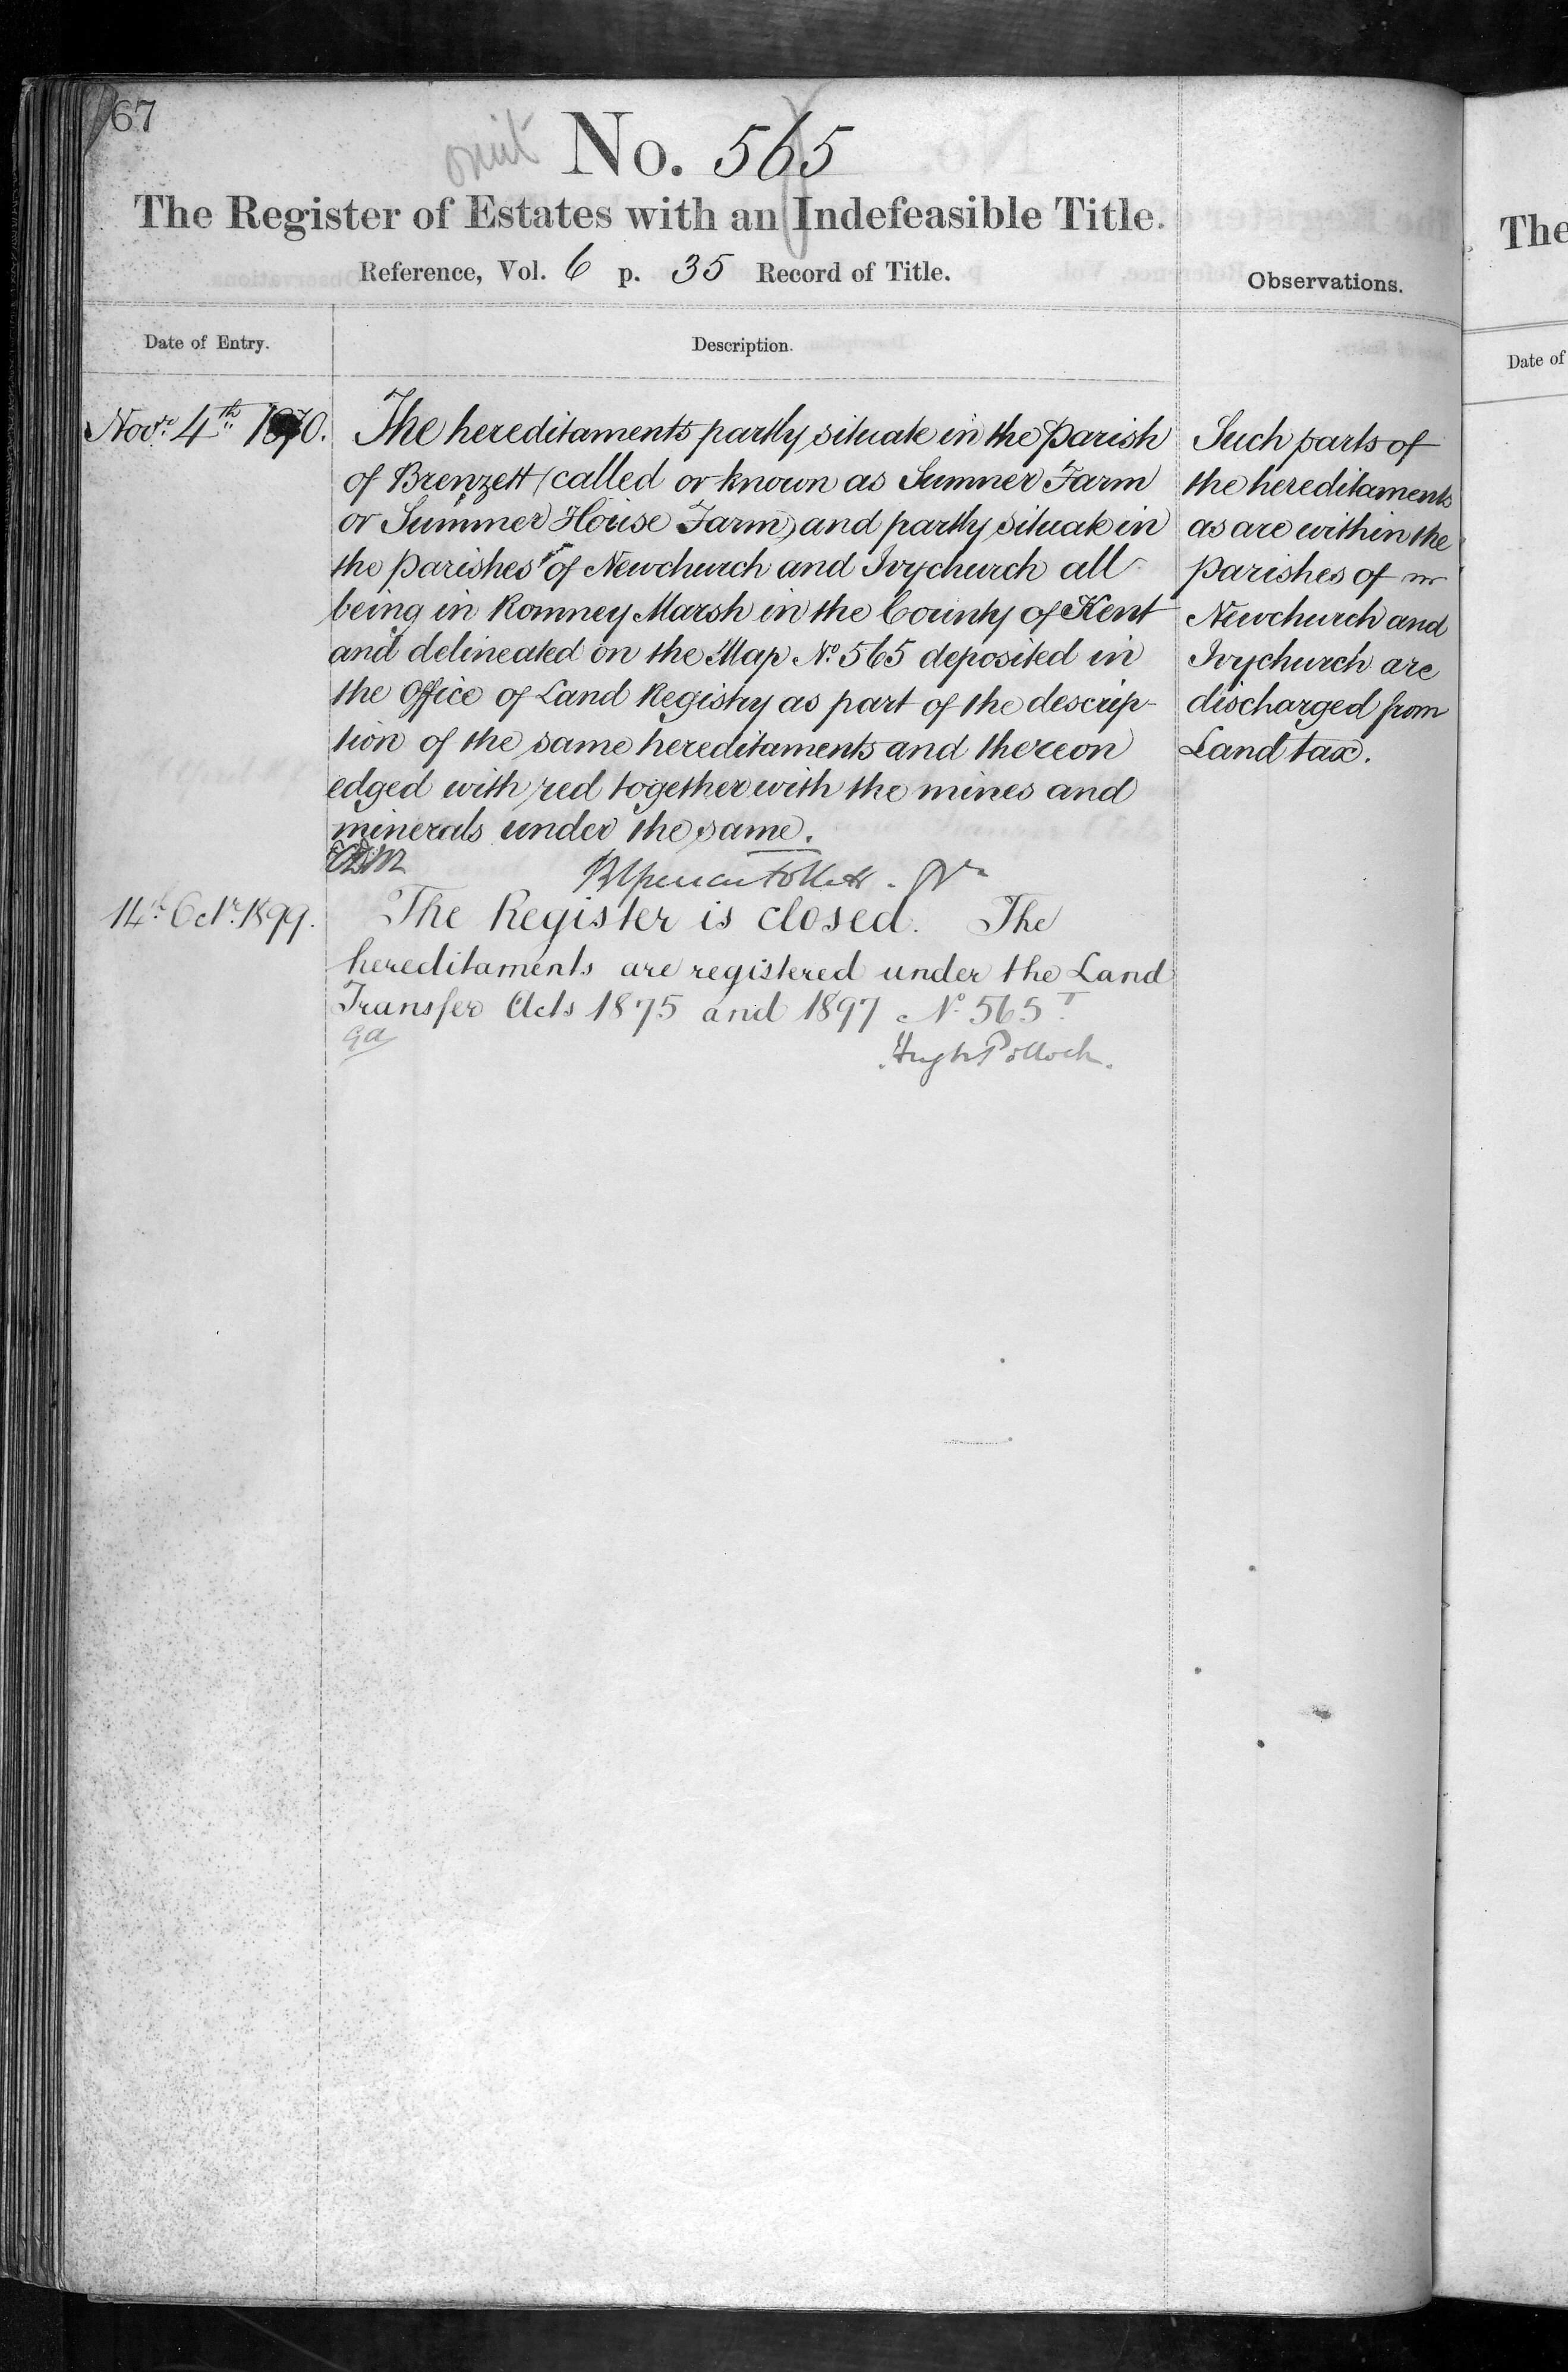 67
omit No. 565
The Register of Estates with an Indefeasible Title.
Reference, Vol. 6 p. 35 Record of Title.
Observations.
Date of Entry.
Description.
Novr. 4th 1870.
The hereditaments partly situate in the Parish
of Brenzett (called or known as Sumner Farm
or Summer House Farm) and partly situate in
the Parishes of Newchurch and Ivychurch all
being in Romney Marsh in the County of Kent
and delineated on the Map No. 565 deposited in
the Office of Land Registry as part of the descrip-
tion of the same hereditaments and thereon
edged with red together with the mines and
minerals under the same.
Such parts of
the hereditaments
as are within the
Parishes of
Newchurch and
Ivychurch are
discharged from
Land tax.
14th Octr. 1899.
The Register is closed. The
hereditaments are registered under the Land
Transfer Acts 1875 and 1897 No. 565 T
Hugh Pollock.
The
Date of